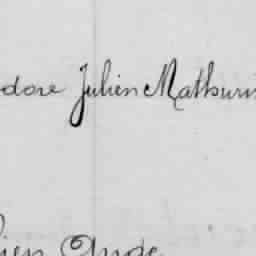 dore Julien Mathurin
lien Ange